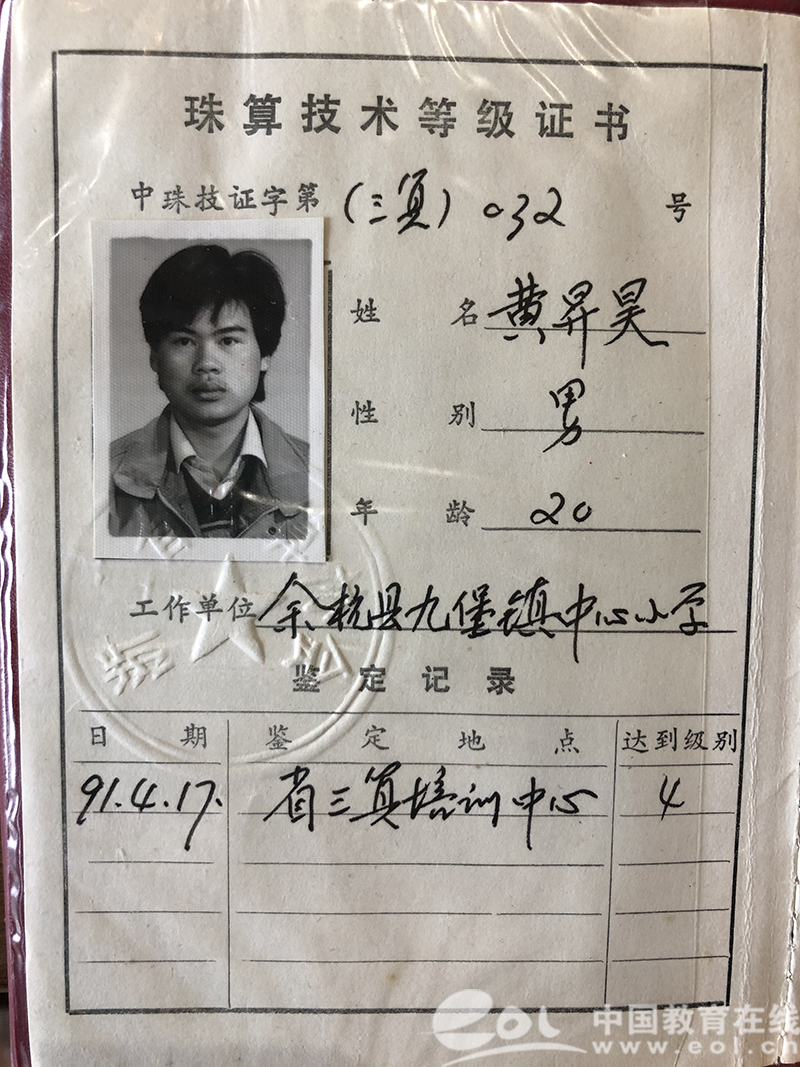 珠算技术等级证书
中珠技证字第(三算)032号
姓名 黄昇昊
性别 男
年龄 20
工作单位 余杭县九堡镇中心小学
鉴定记录
日期 鉴定地点 达到级别
91.4.17. 省三算培训中心 4
eol 中国教育在线
www.eol.cn